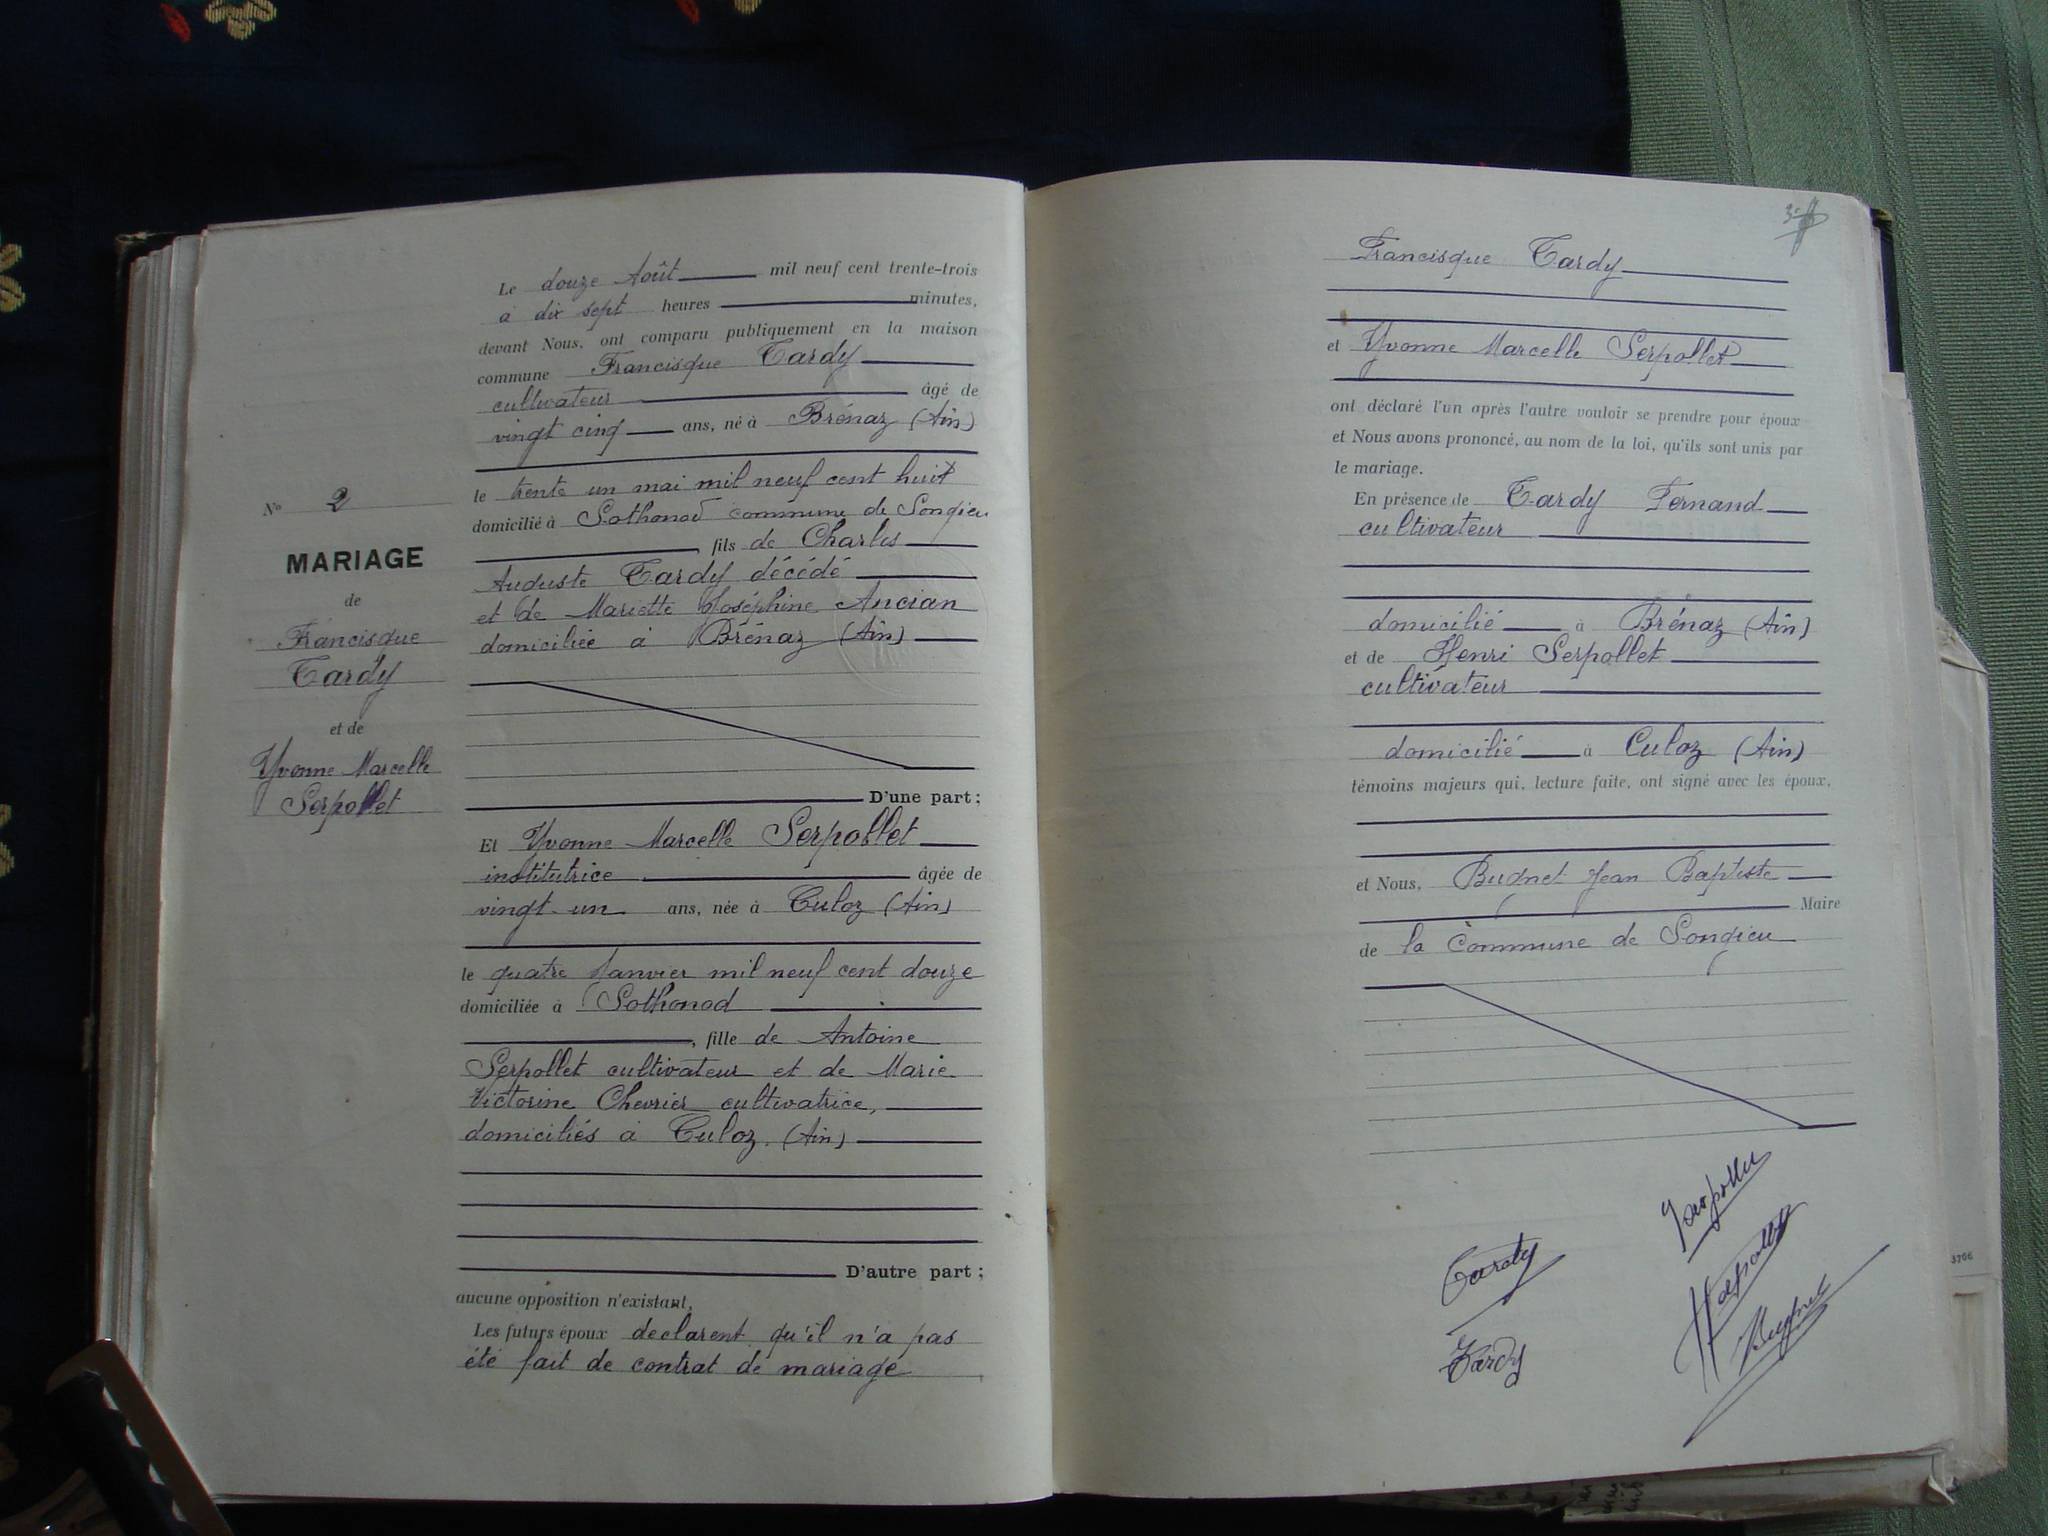 Le douze Août mil neuf cent trente-trois
à dix sept heures minutes,
devant Nous, ont comparu publiquement en la maison
commune Francisque Tardy
cultivateur âgé de
vingt cinq ans, né à Brénaz (Ain)
le trente un mai mil neuf cent huit
domicilié à Sothonod commune de Songieu
, fils de Charles
Auguste Tardy décédé
et de Mariette Joséphine Ancian
domiciliée à Brénaz (Ain)
D'une part;
Et Yvonne Marcelle Serpollet
institutrice âgée de
vingt-un ans, née à Culoz (Ain)
le quatre Janvier mil neuf cent douze
domiciliée à Sothonod
, fille de Antoine
Serpollet cultivateur et de Marie
Victorine Chevrier cultivatrice,
domiciliés à Culoz. (Ain)
D'autre part;
aucune opposition n'existant,
Les futurs époux declarent qu'il n'a pas
été fait de contrat de mariage
No 2
MARIAGE
de
Francisque
Tardy
et de
Yvonne Marcelle
Serpollet
Francisque Tardy
et Yvonne Marcelle Serpollet
ont déclaré l'un après l'autre vouloir se prendre pour époux
et Nous avons prononcé, au nom de la loi, qu'ils sont unis par
le mariage.
En présence de Tardy Fernand
cultivateur
domicilié à Brénaz (Ain)
et de Henri Serpollet
cultivateur
domicilié à Culoz (Ain)
témoins majeurs qui, lecture faite, ont signé avec les époux,
et Nous, Bugnet Jean Baptiste
Maire
de la Commune de Songieu
Tardy
Tardy
Bugnet
3706